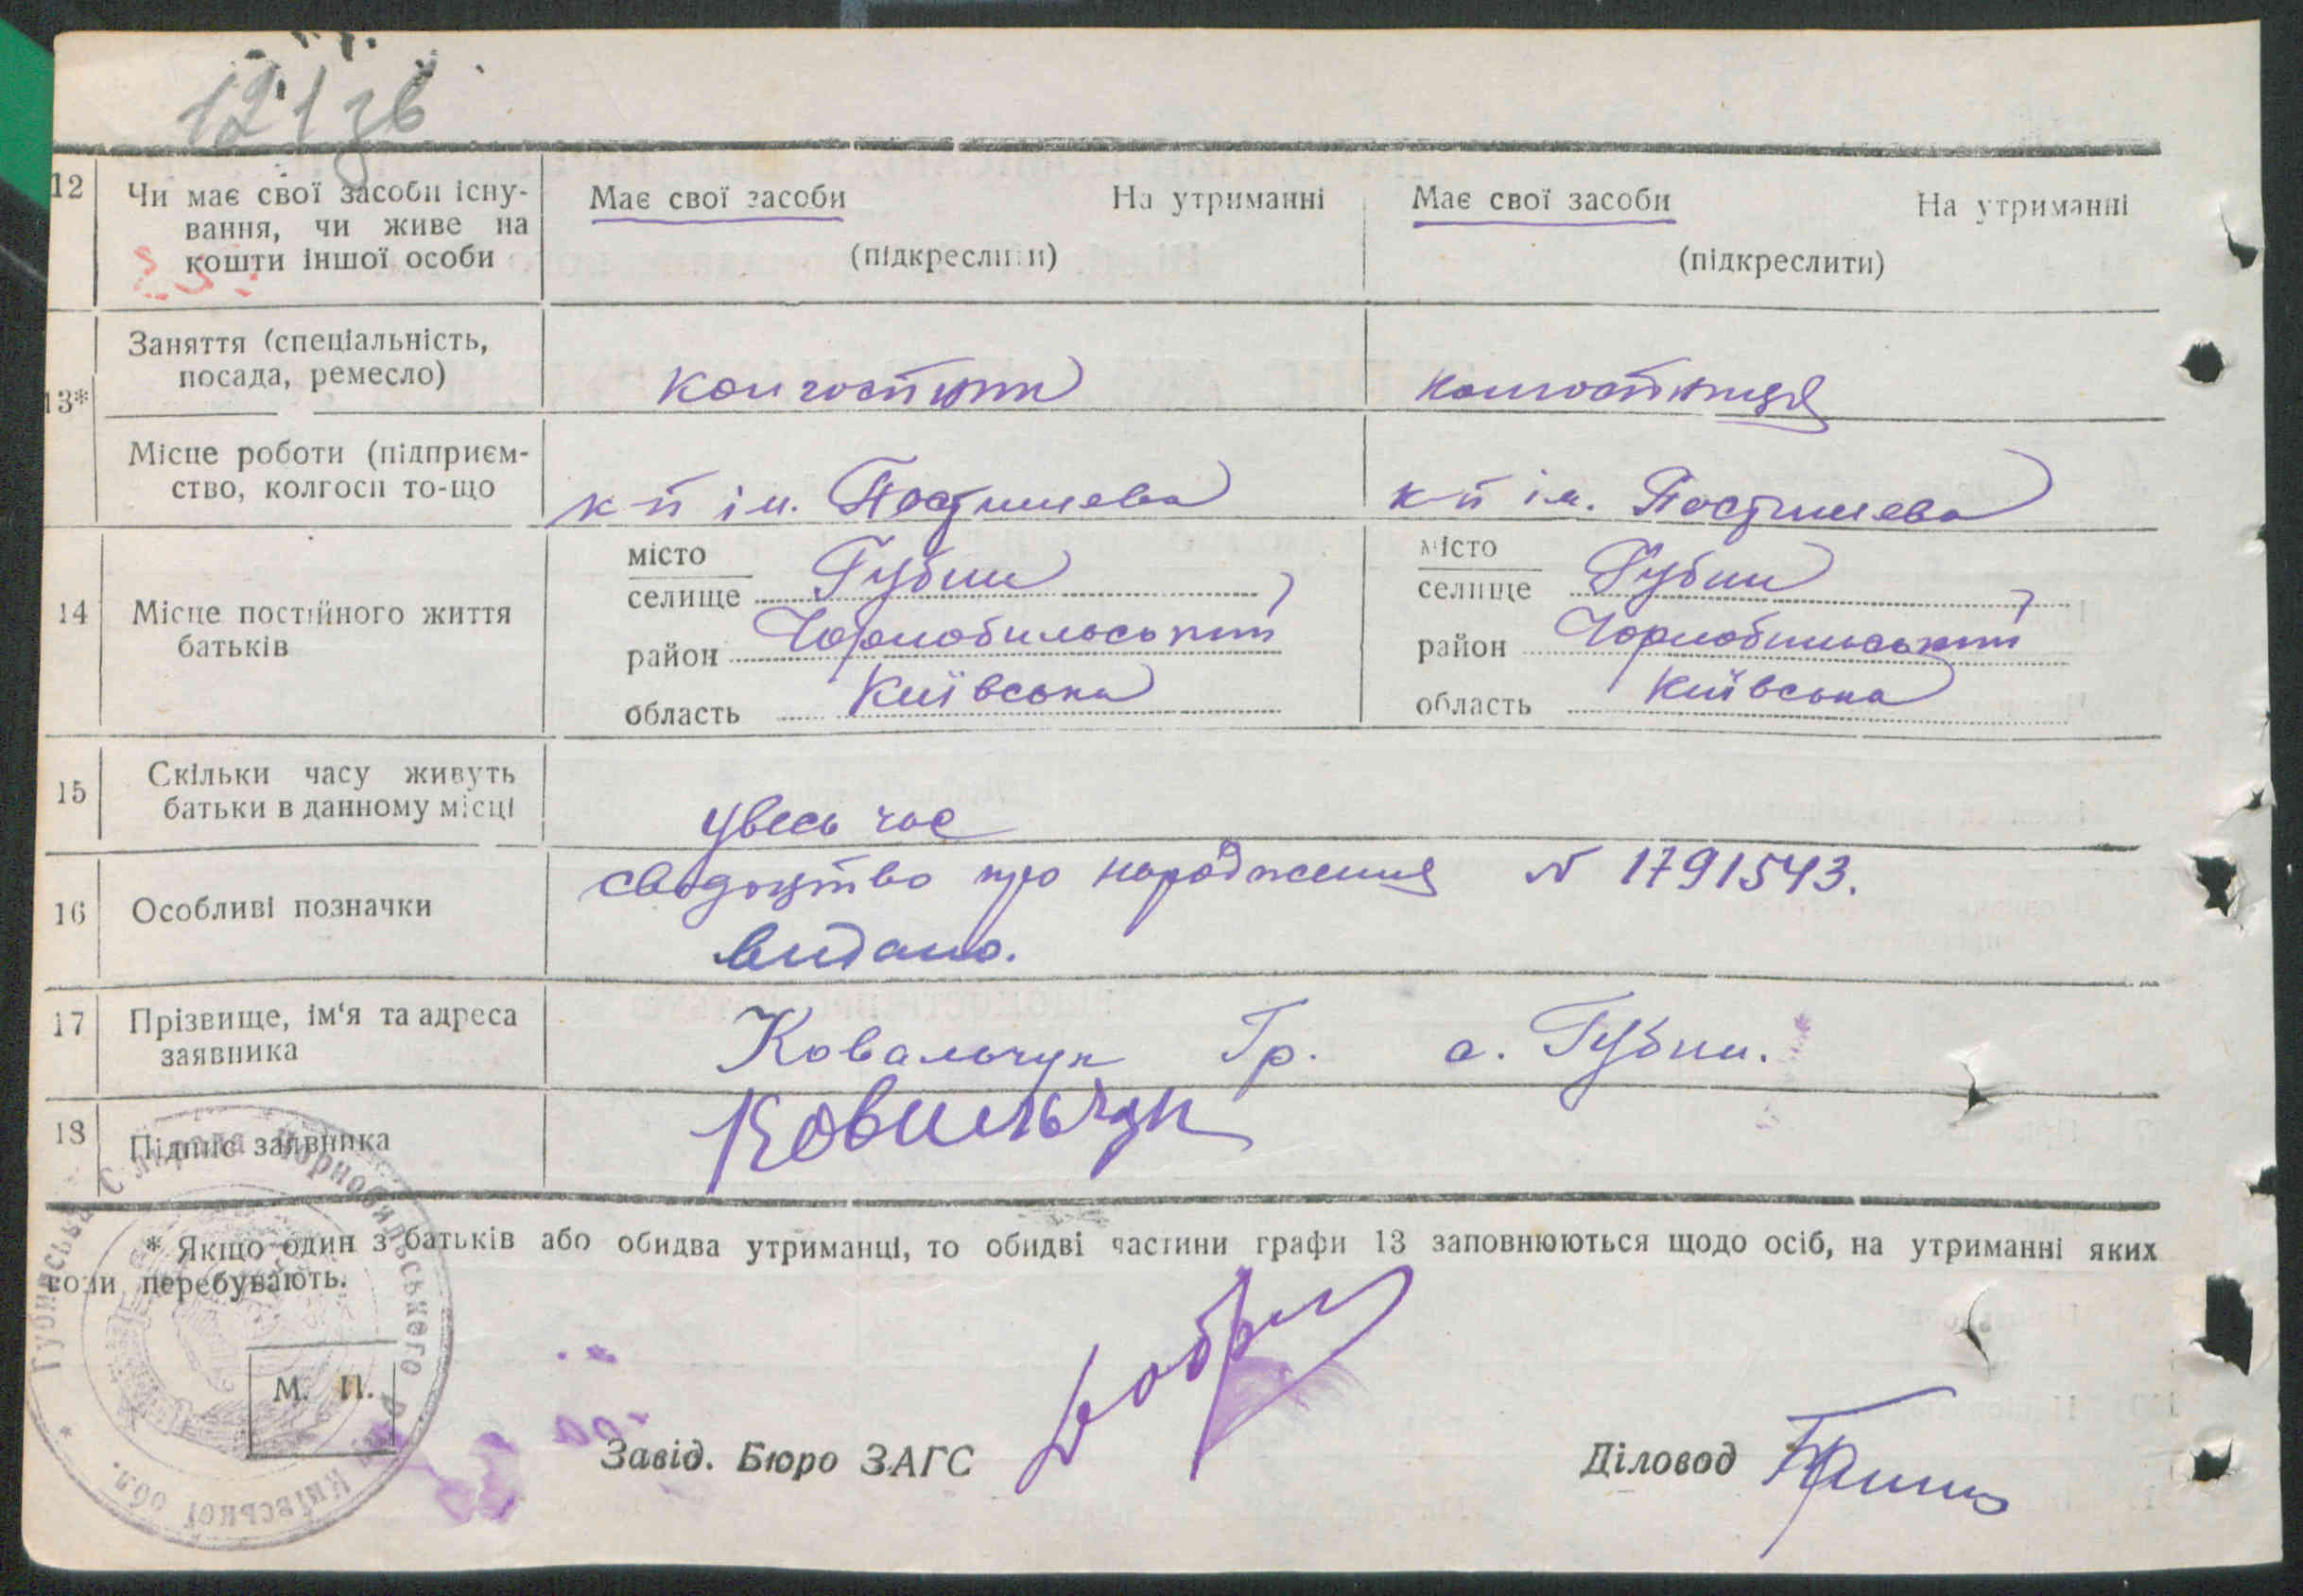 121 зв
12 Чи має свої засоби існу-
вання, чи живе на
кошти іншої особи
Має свої засоби На утриманні
(підкреслити)
Має свої засоби На утриманні
(підкреслити)
13* Заняття (спеціальність,
посада, ремесло)
колгоспник
колгоспниця
Місце роботи (підприєм-
ство, колгосп то-що
к-п ім. Постишева
к-п ім. Постишева
14 Місце постійного життя
батьків
місто
селище Губин,
район Чорнобильський
область Київська
місто
селище Губин,
район Чорнобильський
область Київська
15 Скільки часу живуть
батьки в данному місці
увесь час
16 Особливі позначки
свідоцтво про народження N 1791543.
видано.
17 Прізвище, ім‘я та адреса
заявника
Ковальчук Гр. с. Губин.
18 Підпис заявника
Ковальчук
* Якщо один з батьків або обидва утриманці, то обидві частини графи 13 заповнюються щодо осіб, на утриманні яких
вони перебувають.
М. П.
Губинська Сільрада Чорнобильського р-ну Київської обл.
Завід. Бюро ЗАГС
Діловод